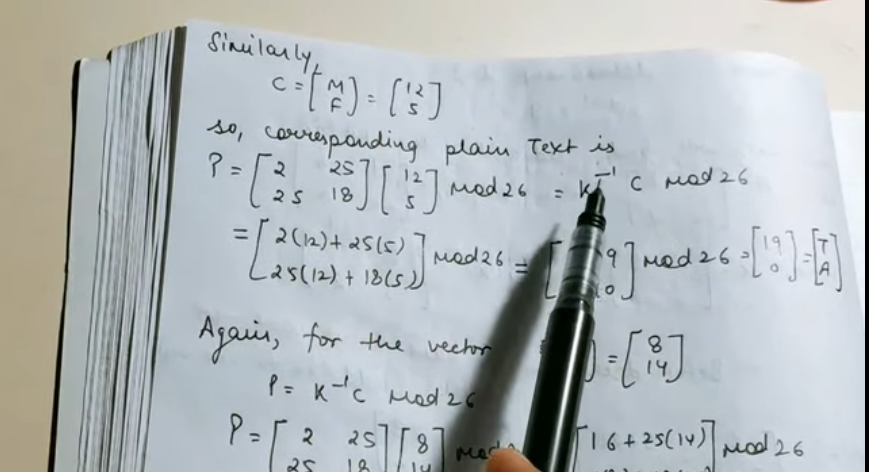 Similarly,
C = [M F] = [12 5]
so, corresponding plain Text is
P = [2 25 25 18] [12 5] mod 26 = K⁻¹ C mod 26
= [2(12) + 25(5) 25(12) + 18(5)] mod 26 = [ 9 0] mod 26 = [19 0] = [T A]
Again, for the vector ] = [8 14]
P = K⁻¹C mod 26
P = [2 25 25 18] [8 14] mod [16 + 25(14)] mod 26